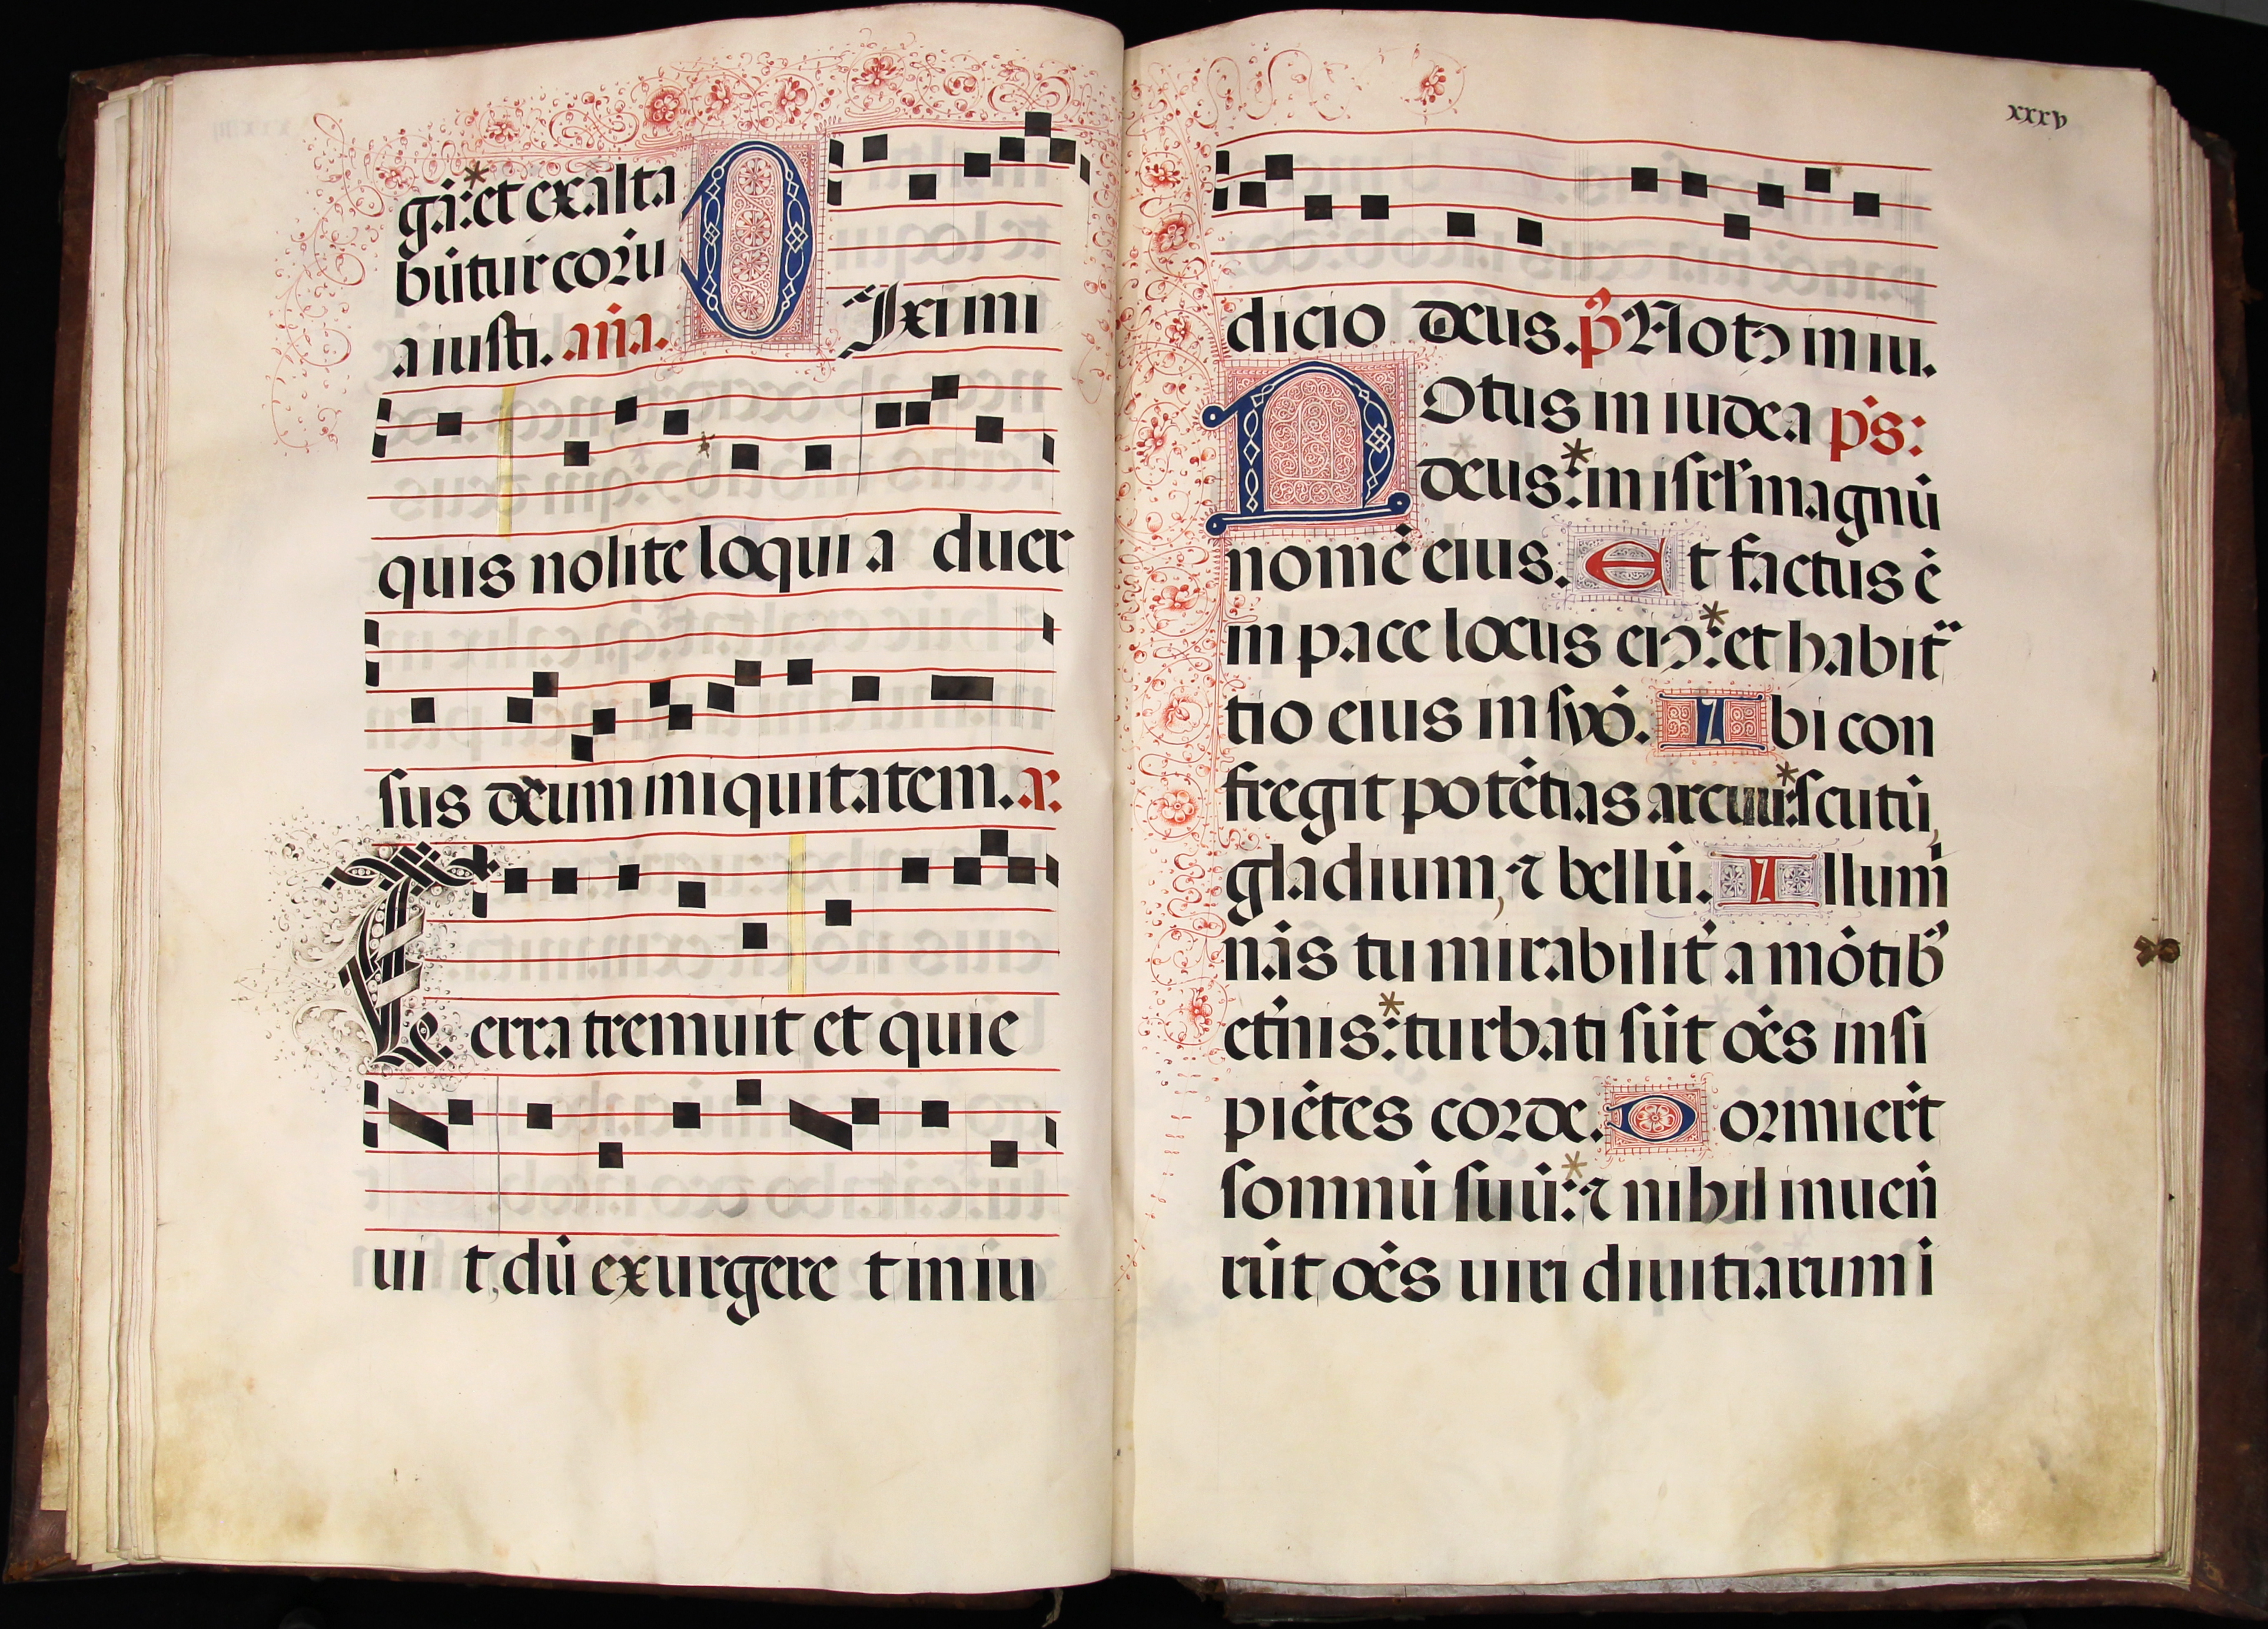 gā: * et exalta
būtur corū
a iusti. aña.
DIxi ini
quis nolite loqui a duer
sus deum iniquitatem. a.
Terra tremuit et quie
ui t, dū exurgere t in iu
xxxv
dicio deus. pš Notꝰ in iu.
NOtus in iudea p̄s:
deus: * in isrl' magnū
nomē eius. Et factus ē
in pace locus eiꝰ: * et habita
tio eius in syō. Ibi con
fregit potētias arcuū: * scutū,
gladium, ⁊ bellū. Illumi
nās tu mirabilit' a mōtibꝰ
et'nis: * turbati sūt oēs insi
piētes corde. Dormierūt
somnū suū: * ⁊ nihil inuen̄
rūt oēs uiri diuitiarum i